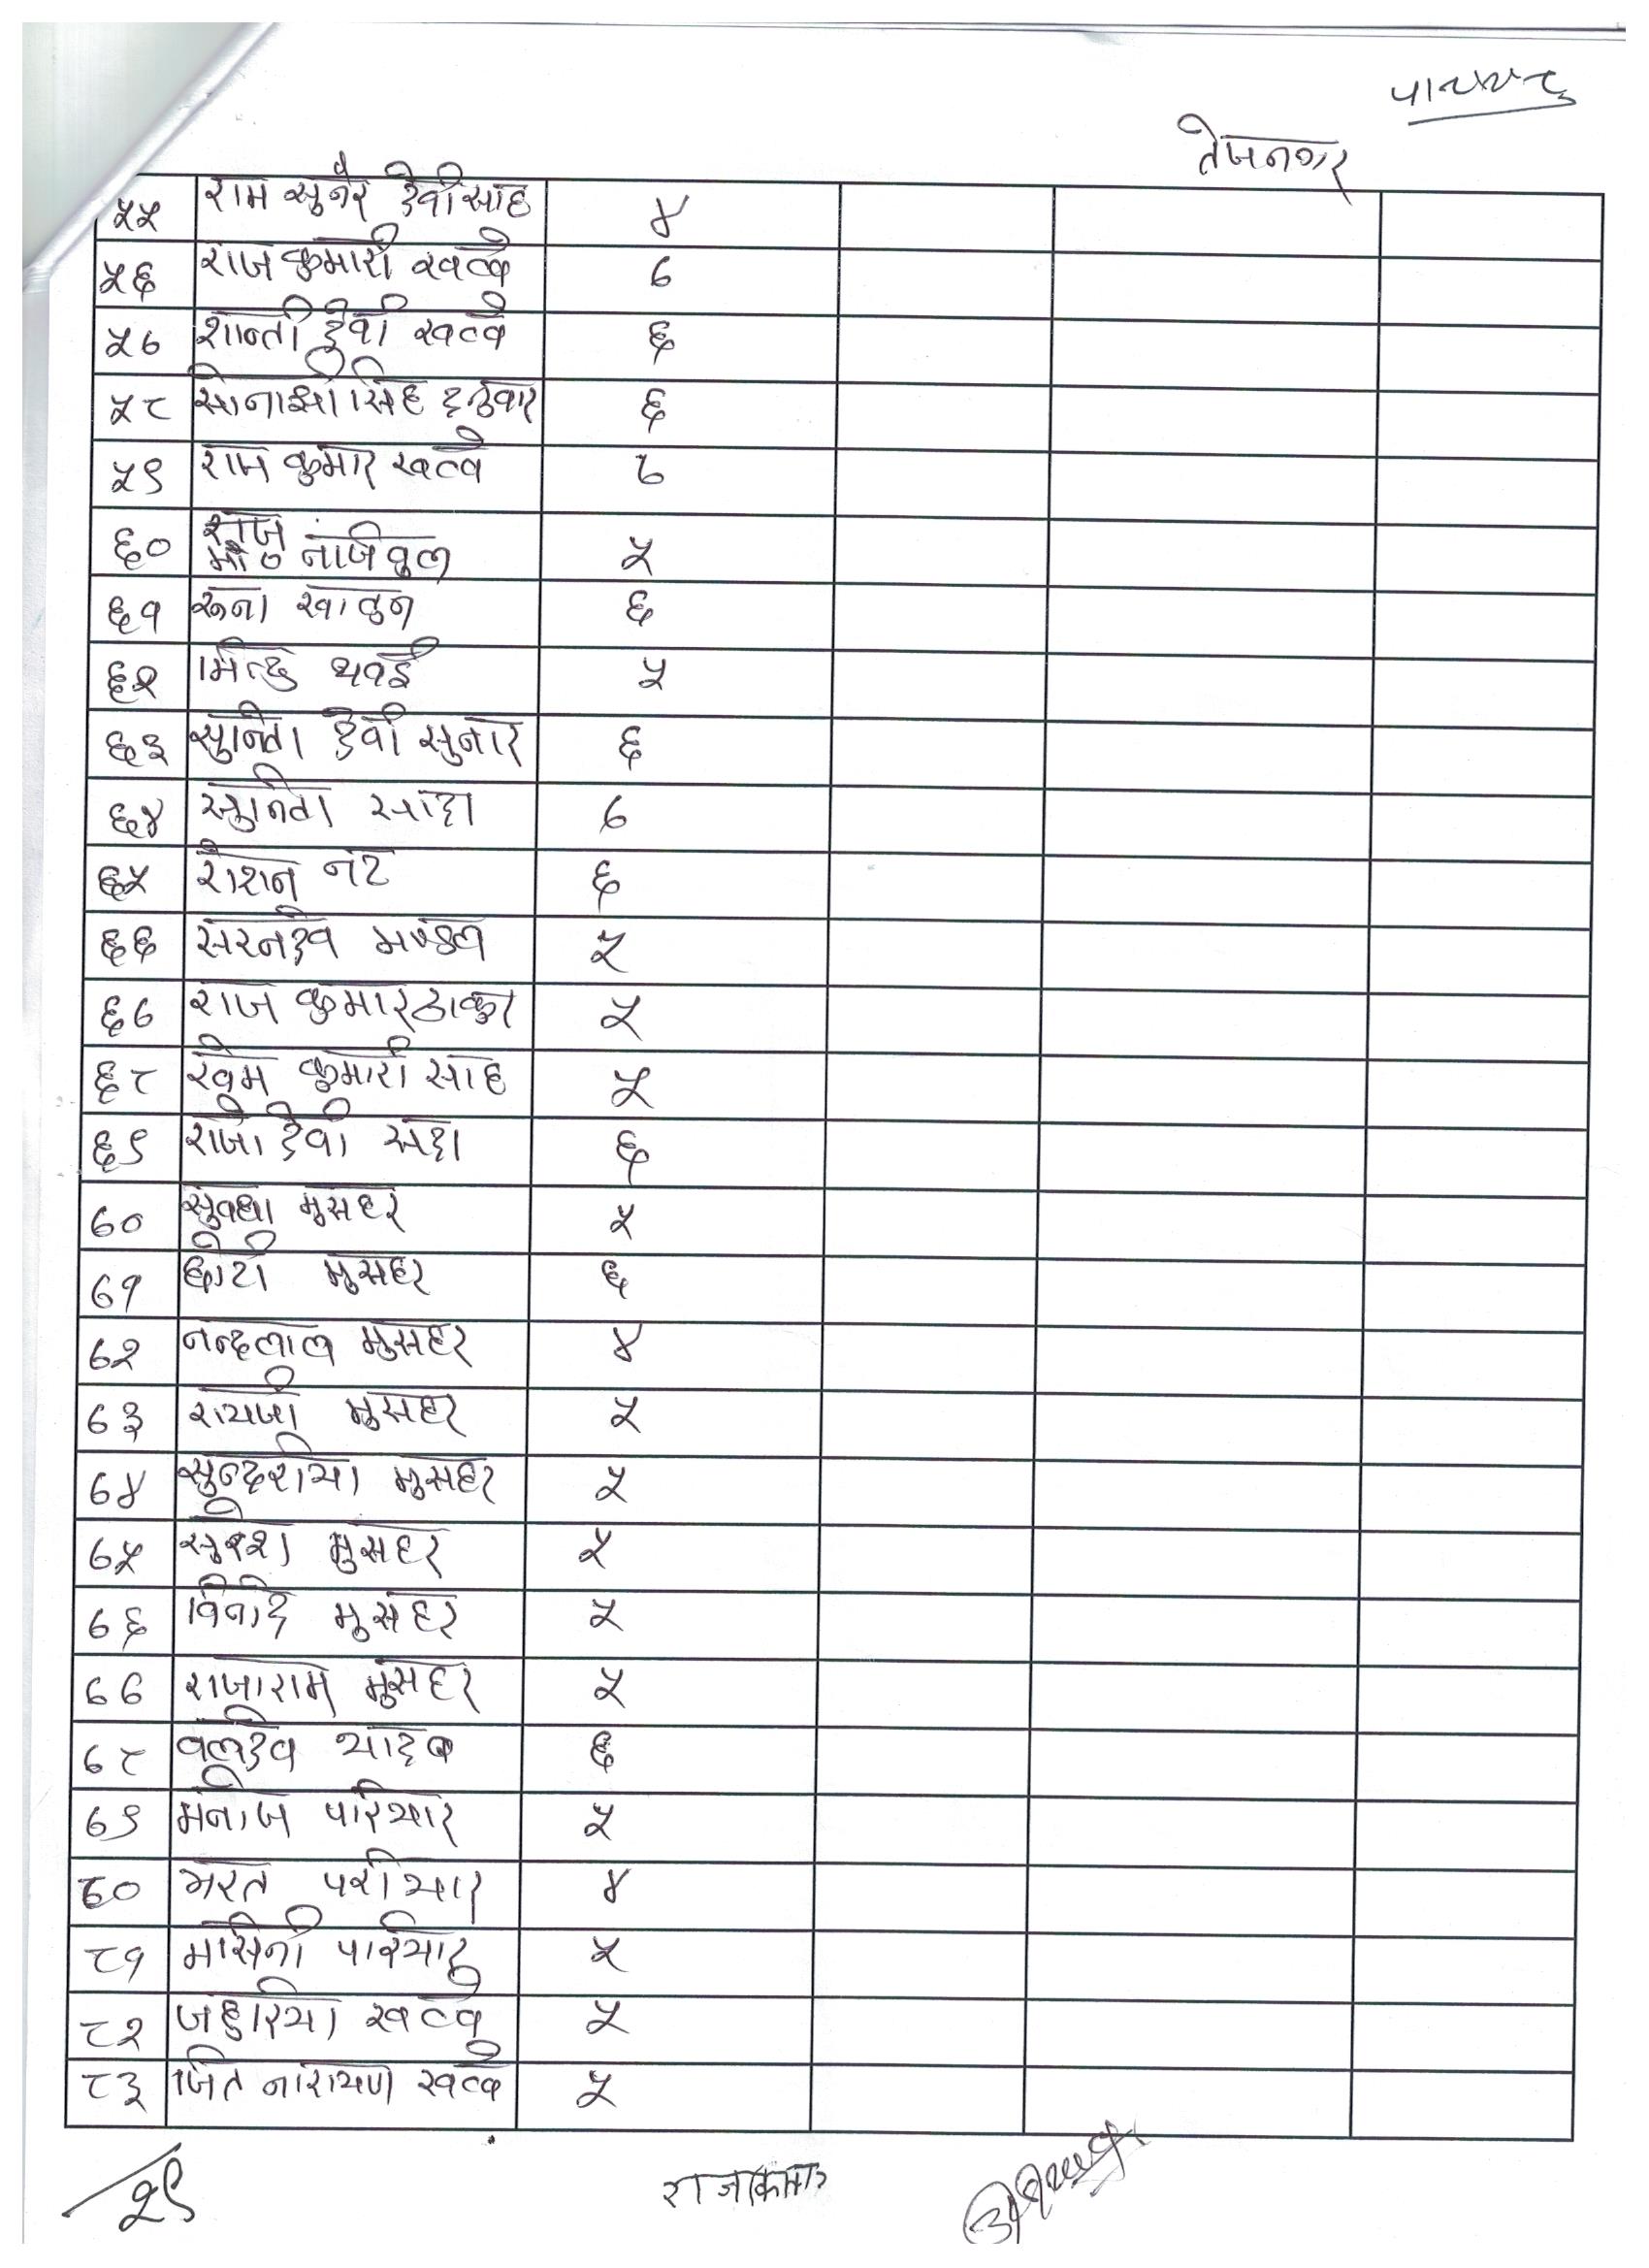 तेजनगर
५५ राम सुनैर देवी साह ४
५६ राज कुमारी खत्वे ७
५७ शान्ती देवी खत्वे ६
५८ सिंह दनुवार ६
५९ राम कुमार खत्वे
६० राजु
मो० नाजिवुल ५
६१ रुना खातुन ६
६२ मिन्टु थवई ५
६३ सुनिता देवी सुनार ६
६४ सुनिता सादा ७
६५ रोशन नट ६
६६ सरनदेव मण्डल ५
६७ राज कुमार ठाकुर ५
६८ खेम कुमारी साह ५
६९ राजो देवी सदा ६
७० मुसहर ५
७१ छोटी मुसहर ६
७२ नन्दलाल मुसहर ४
७३ रायजी मुसहर ५
७४ मुसहर ५
७५ सुरेश मुसहर ५
७६ विनोद मुसहर ५
७७ राजाराम मुसहर ५
७८ वलदेव यादव ६
७९ मनोज परियार ५
८० भरत परीयार ४
८१ परियार ५
८२ जहुरिया खत्वे ५
८३ जित नारायण खत्वे ५
२९
राजकिमार